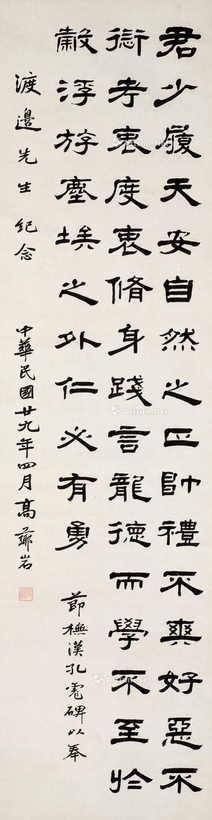 君少履天姿自然之正帥禮不爽好惡不
愆考衷度衷脩身踐言龍德而學不至於
穀浮斿塵埃之外仁必有勇 節橅漢孔彪碑以奉
渡邊先生紀念 中華民國廿九年四月高岩